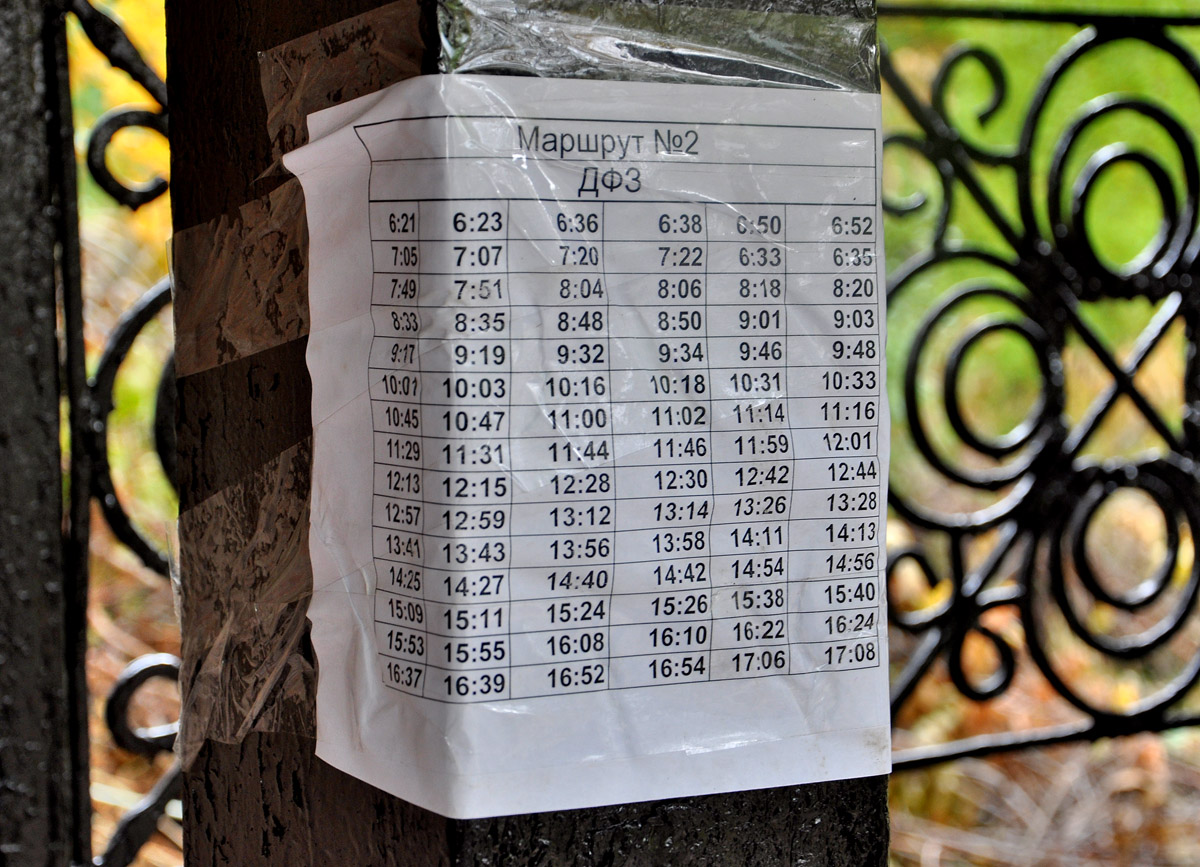 Маршрут №2
ДФЗ
6:21 6:23 6:36 6:38 6:50 6:52
7:05 7:07 7:20 7:22 6:33 6:35
7:49 7:51 8:04 8:06 8:18 8:20
8:33 8:35 8:48 8:50 9:01 9:03
9:17 9:19 9:32 9:34 9:46 9:48
10:01 10:03 10:16 10:18 10:31 10:33
10:45 10:47 11:00 11:02 11:14 11:16
11:29 11:31 11:44 11:46 11:59 12:01
12:13 12:15 12:28 12:30 12:42 12:44
12:57 12:59 13:12 13:14 13:26 13:28
13:41 13:43 13:56 13:58 14:11 14:13
14:25 14:27 14:40 14:42 14:54 14:56
15:09 15:11 15:24 15:26 15:38 15:40
15:53 15:55 16:08 16:10 16:22 16:24
16:37 16:39 16:52 16:54 17:06 17:08